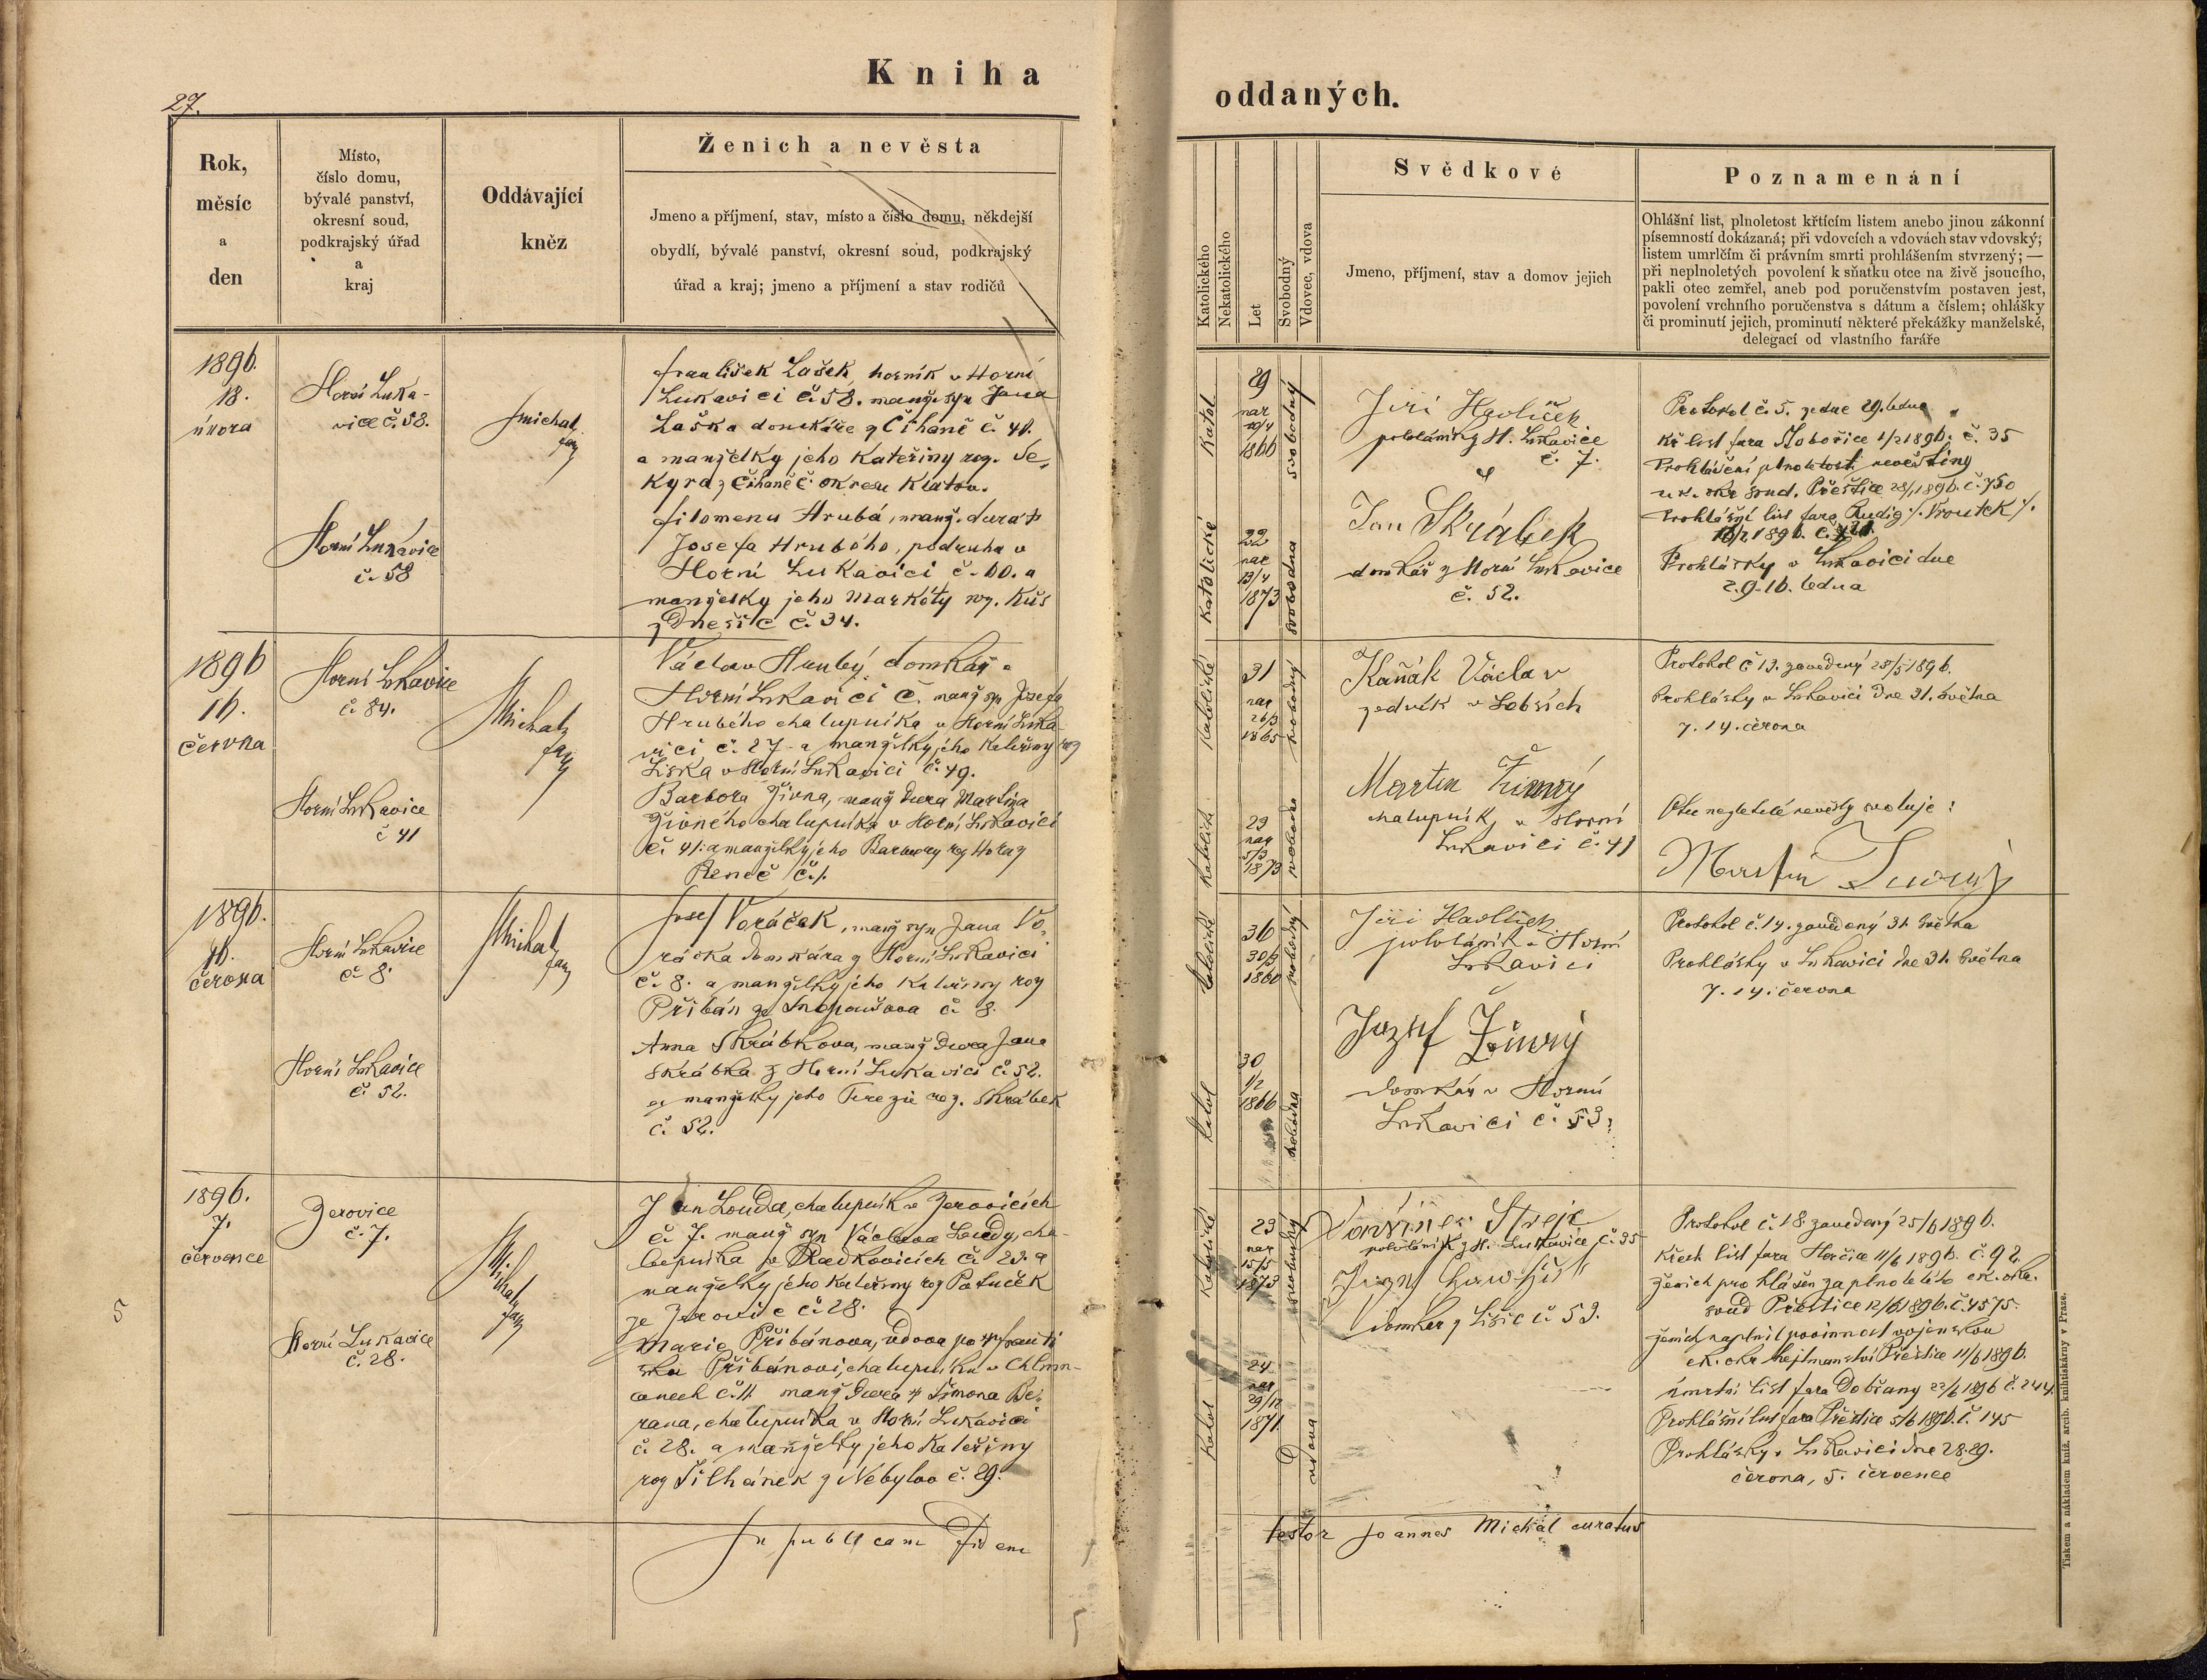 Kniha
oddaných.
27.
Rok,
měsíc
a
den
Místo,
číslo domu,
bývalé panství,
okresní soud,
podkrajský úřad
a
kraj
Oddávající
kněz
Ženich a nevěsta
Jmeno a příjmení, stav, místo a číslo domu, někdejší
obydlí, bývalé panství, okresní soud, podkrajský
úřad a kraj; jmeno a příjmení a stav rodičů
Katolického
Nekatolického
Let
Svobodný
Vdovec, vdova
Svědkové
Jmeno, příjmení, stav a domov jejich
Poznamenání
Ohlášní list, plnoletost křtícím listem anebo jinou zákonní
písemností dokázaná; při vdovcích a vdovách stav vdovský;
listem umrlčím či právním smrti prohlášením stvrzený; —
při neplnoletých povolení k sňatku otce na živě jsoucího,
pakli otec zemřel, aneb pod poručenstvím postaven jest,
povolení vrchního poručenstva s dátum a číslem; ohlášky
či prominutí jejich, prominutí některé překážky manželské,
delegací od vlastního faráře
1896.
18.
února
Horní Luka-
vice č. 58.
Michal
far
Horní Lukavice
č. 58
František Lašek, horník v Horní
Lukavici č. 58. manž. syn Jana
Laška domkáře z Číhaně č. 41.
a manželky jeho Kateřiny roz. Se,
kyra z Číhaně č okresu Klatov.
Filomena Hrubá, manž. dcera
Josefa Hrubého, podruha v
Horní Lukavici č. 60. a
manželky jeho Markéty roz. Kůs
z Dnešic č. 34.
Katol
29
nar
1866
svobodný
Katolické
22
nar
13/4
1873
svobodna
Jiří Havlíček
pololáník z H. Lukavice
č. 7.
Jan Skrábek
domkář z Horní Lukavice
č. 52.
Protokol č. 5. ze dne 29. ledna
Kř list fara 1/2 1896. č. 35
Prohlášení plnoletosti nevěstiny
ck. okr soud. Přeštice 28/1 1896. č. 750
Prohlášní list fara Rudig /: Vroutek /.
16/2 1896. č.
Prohlášky v Lukavici dne
2. 9. 16. ledna
1896
16.
června
Horní Lukavice
č. 84.
Michal
far
Horní Lukavice
č 41
Václav Hrubý domkář v
Horní Lukavici č. manž syn Josefa
Hrubého chalupníka v Horní Luka-
vici č. 27 a manželky jeho Kateřiny roz
Liška v Horní Lukavici č. 49.
Barbora Živna, manž dcera Martina
Živného chalupníka v Horní Lukavici
č. 41. a manželky jeho Barbory roz Hora z
Řeneč č. 1.
Katolické
31
nar
26/3
1865
svobodný
23
nar
5/3
1873
Kaňák Václav
zedník v Lobzích
Martin Živný
chalupník v Horní
Lukavici č. 41
Protokol č 13. zavedený 28/5 1896.
Prohlášky v Lukavici dne 31. května
7. 14. června
Otec nezletilé nevěsty svoluje:
Martin Živný
1896.
16.
června
Horní Lukavice
č. 8.
Michal
far
Horní Lukavice
č. 52.
Josef Voráček, manž syn Jana Vo,
ráčka domkára z Horní Lukavici
č. 8. a manželky jeho Kateřiny roz
Přibáň ze Snopoušova č. 8.
Anna Skrábkova, manž dcera Jana
Skrábka z Horní Lukavici č. 52.
a manželky jeho Terezie roz. Skrábek
č. 52.
36
30/3
1860
svobodný
Katol
30
1/2
1866
Jiří Havlíček
pololáník v Horní
Lukavici
Jozef Živný
domkář v Horní
Lukavici č. 53.
Protokol č. 14. zavedený 31. května
Prohlášky v Lukavici dne 31. května
7. 14. června
1896.
7.
července
Zerovice
č. 7.
Michal
far
Horní Lukavice
č. 28.
5
Jan Louda, chalupník v Zerovicích
č. 7. manž syn Václava Loudy, cha-
lupníka v Radkovicích č. 23. a
manželky jeho Kateřiny roz Potuček
ze Zerovic č. 28.
Marie Přibánova, vdova po † Franti
šku Přibánovi, chalupníku v Chlum-
canech č. 11. manž dcera † Šimona Be,
rana, chalupníka v Horní Lukavici
č. 28. a manželky jeho Kateřiny
roz Šilhánek z Nebylov č. 29.
Katolické
23
nar
15/5
1873
svobodný
Katol
24
nar
29/12
1871.
vdova
pololáník z H. Lukavice č. 35
domkar z Lišic č. 53.
Protokol č. 18 zavedený 25/6 1896.
Křech list fara Horčice 11/6 1896. č. 92.
ženich prohlášen za plnoletého ck. okr.
soud Přeštice 12/6 1896. č. 4575.
ženich naplnil povinnost vojenskou
ck. okr hejtmanství Přeštice 11/6 1896.
úmrtní list fara Dobřany 22/6 1896 č. 244.
Prohlášní list fara Přeštice 5/6 1896. č. 145
Prohlášky v Lukavici dne 28. 29.
června, 5. července
In publicam Fidem
testor Joannes Michal curatus
Tiskem a nákladem kníž. arcib. knihtiskárny v Praze.